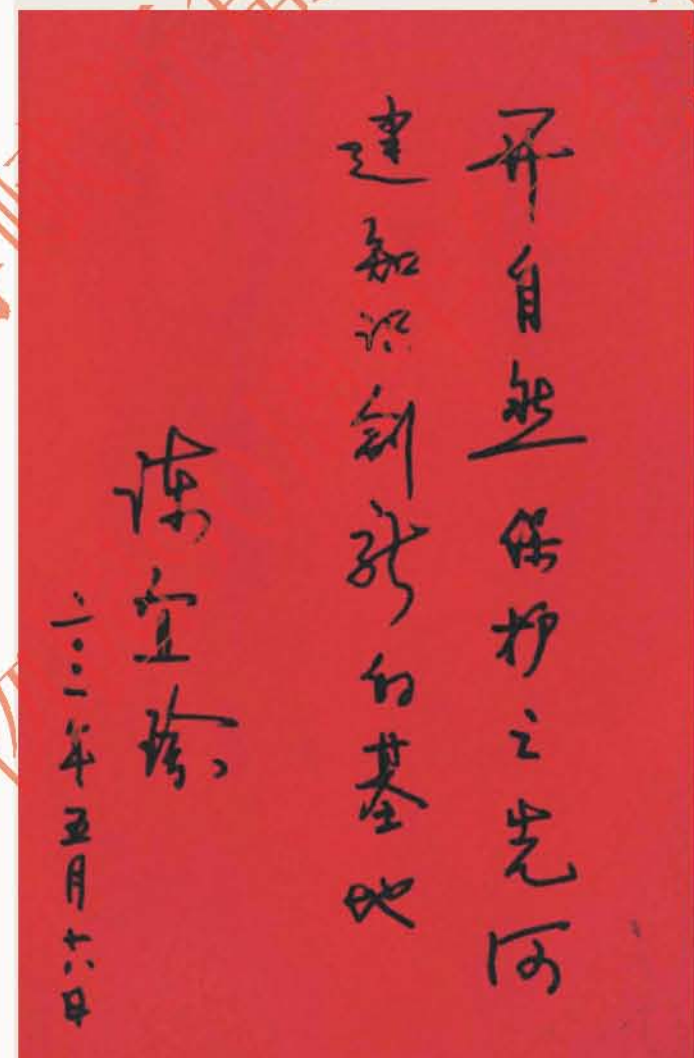 开自然保护之先河
建知识创新的基地
陈宜瑜
二〇〇一年五月十八日